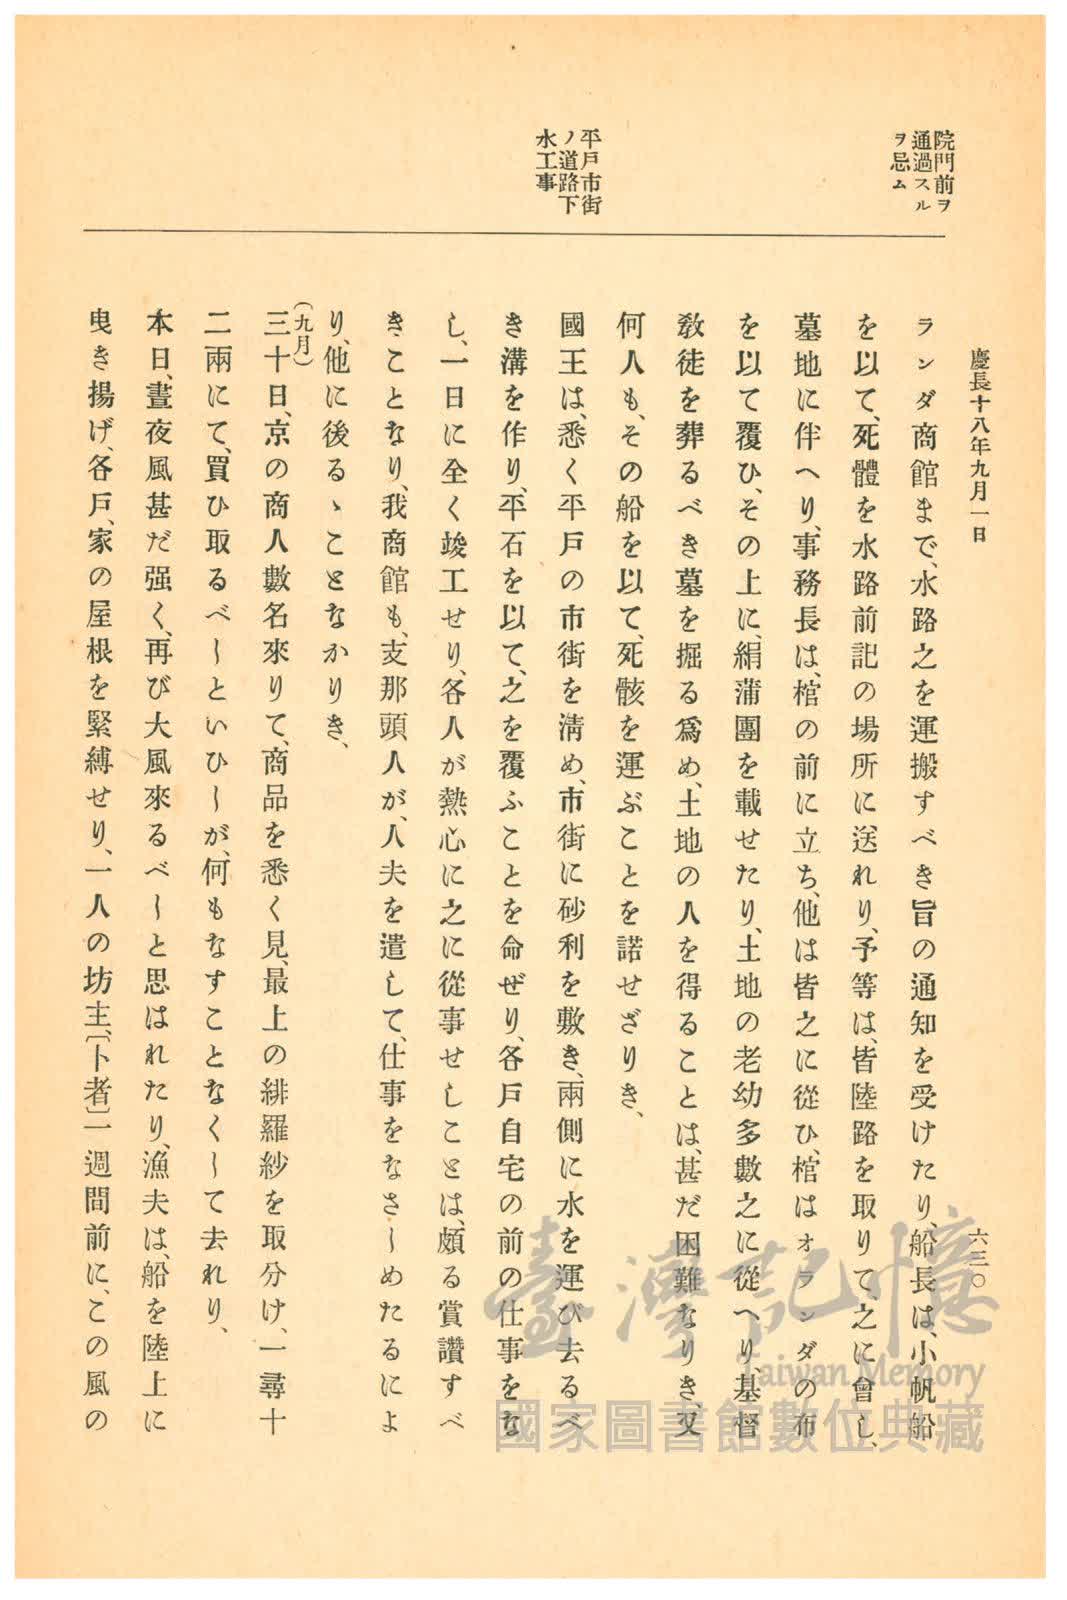 慶長十八年九月一日
六三〇
院門前ヲ
通過スル
ヲ忌ム
平戸市街
ノ道路下
水工事
ランダ商館まで、水路之を運搬すべき旨の通知を受けたり、船長は、小帆船
を以て、死體を水路前記の場所に送れり、予等は、皆陸路を取りて、之に會し、
墓地に伴へり、事務長は、棺の前に立ち、他は皆之に從ひ、棺はオランダの布
を以て覆ひ、その上に、絹蒲團を載せたり、土地の老幼多數之に從へり、基督
敎徒を葬るべき墓を掘る爲め、土地の人を得ることは、甚だ困難なりき、又
何人も、その船を以て、死骸を運ぶことを諾せざりき、
國王は、悉く平戸の市街を淸め、市街に砂利を敷き、兩側に水を運び去るべ
き溝を作り、平石を以て、之を覆ふことを命ぜり、各戸自宅の前の仕事をな
し、一日に全く竣工せり、各人が熱心に之に從事せしことは、頗る賞讚すべ
きことなり、我商館も、支那頭人が、人夫を遣して、仕事をなさしめたるによ
り、他に後るゝことなかりき、
(九月)
三十日、京の商人數名來りて、商品を悉く見、最上の緋羅紗を取分け、一尋十
二兩にて、買ひ取るべしといひしが、何もなすことなくして去れり、
本日、晝夜風甚だ强く、再び大風來るべしと思はれたり、漁夫は、船を陸上に
曳き揚げ、各戸、家の屋根を緊縛せり、一人の坊主、〔卜者〕一週間前に、この風の
臺灣記憶
Taiwan Memory
國家圖書館數位典藏